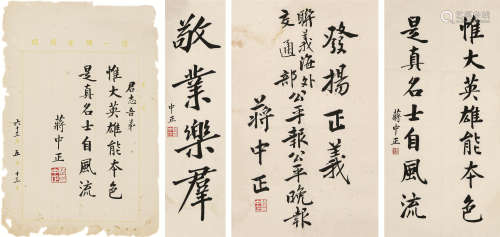 君志吾弟
惟大英雄能本色
是真名士自風流
蔣中正
敬業樂羣
中正
發揚正義
聯義海外
交通部
公平報公平晚報
蔣中正
惟大英雄能本色
是真名士自風流
蔣中正